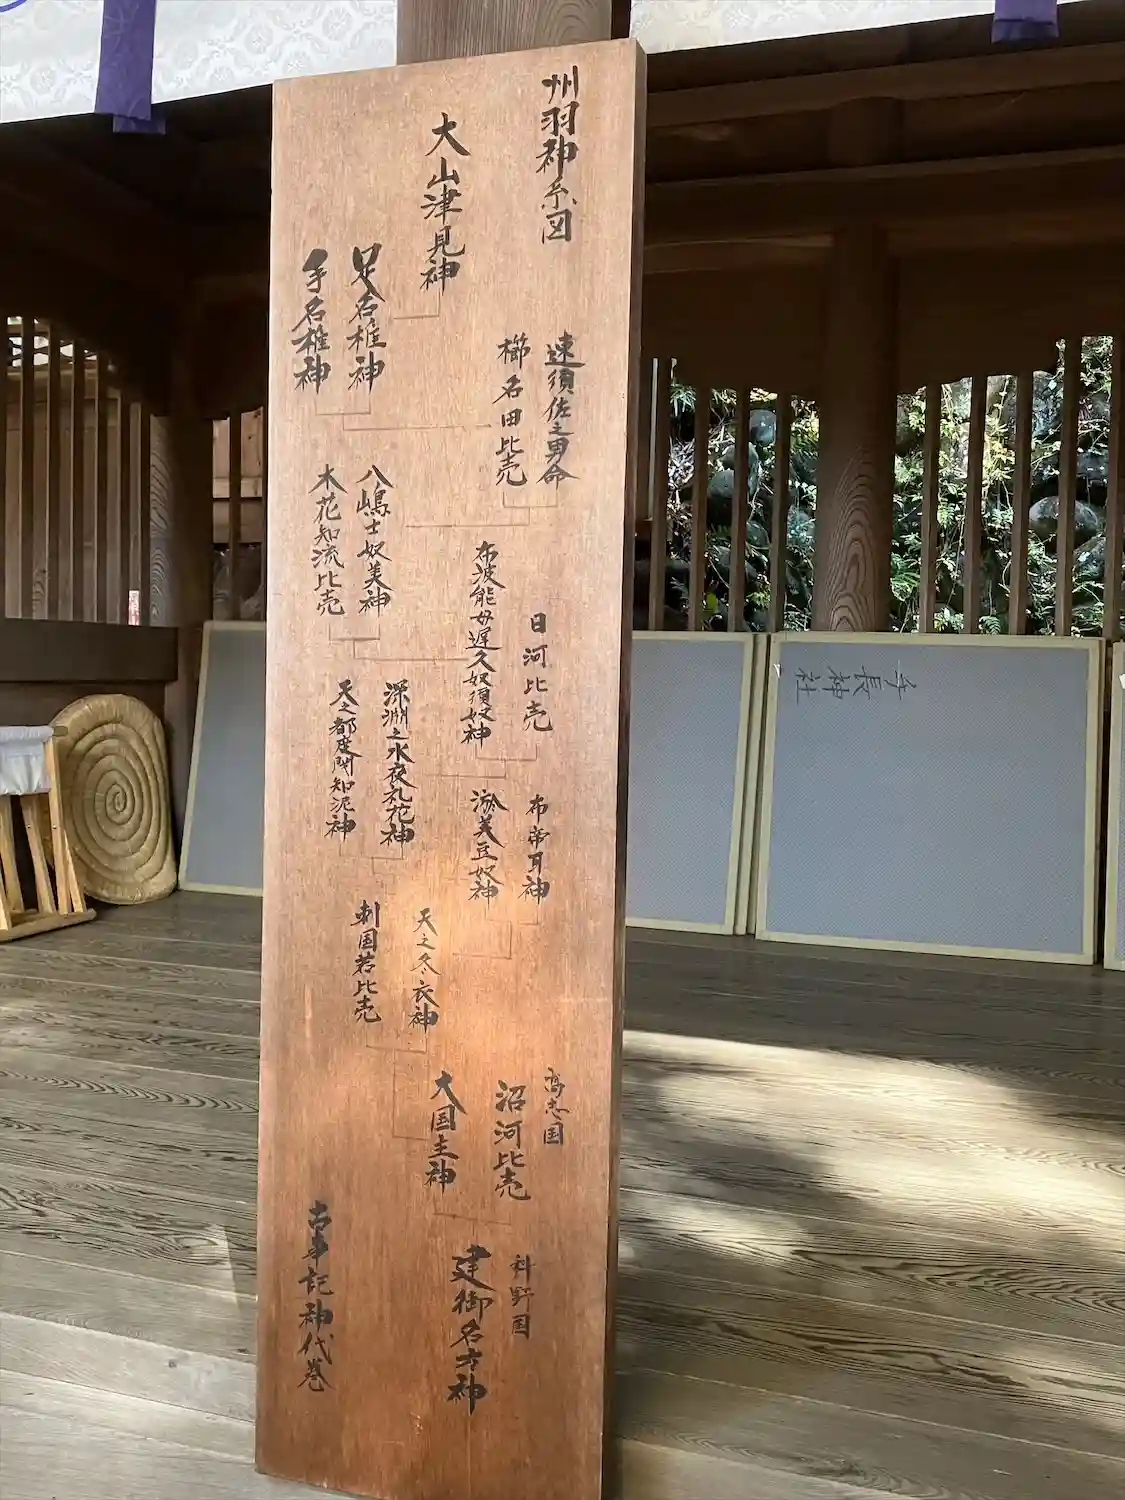 州羽神系図
大山津見神
足名椎神
手名椎神
速須佐之男命
櫛名田比売
八嶋士奴美神
木花知流比売
日河比売
布波能母遅久奴須奴神
深淵之水夜礼花神
天之都度閇知泥神
布帝耳神
淤美豆奴神
天之冬衣神
刺国若比売
高志国
沼河比売
大国主神
科野国
建御名方神
古事記神代巻
手長神社